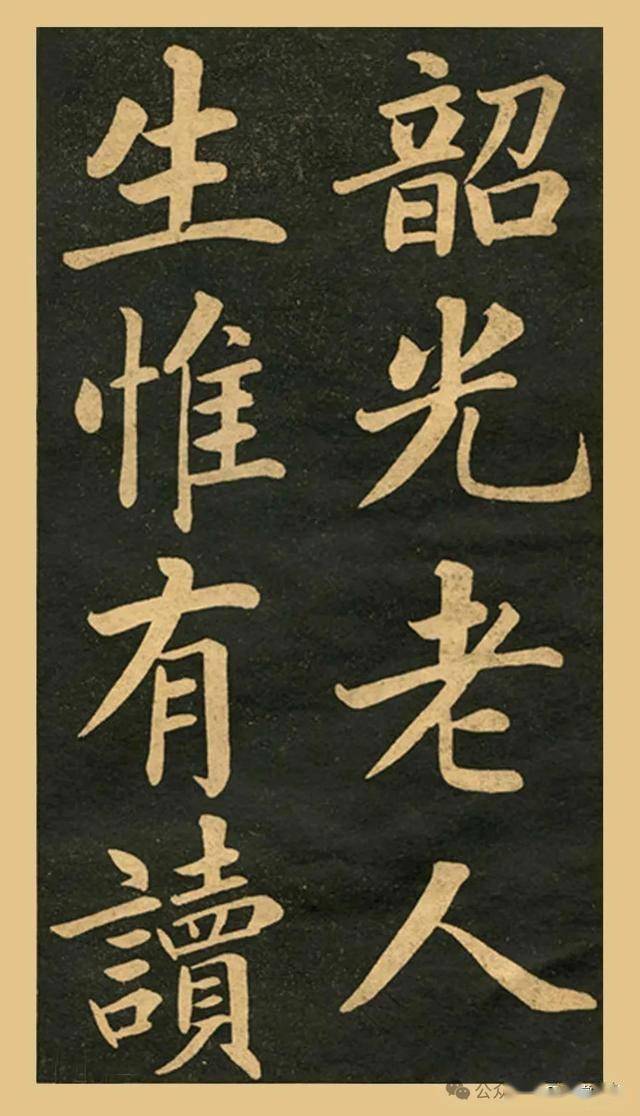 韶光老人
生惟有讀
公众